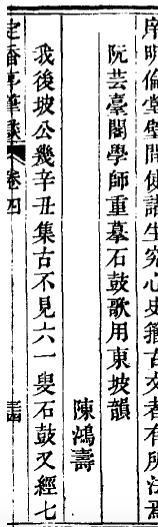 序明倫堂壁間使諸生究心史籀古文者有所法焉
阮芸臺閣學師重摹石鼓歌用東坡韻
陳鴻壽
我後坡公幾辛丑集古不見六一叟石鼓又經七
定香亭筆談
卷四